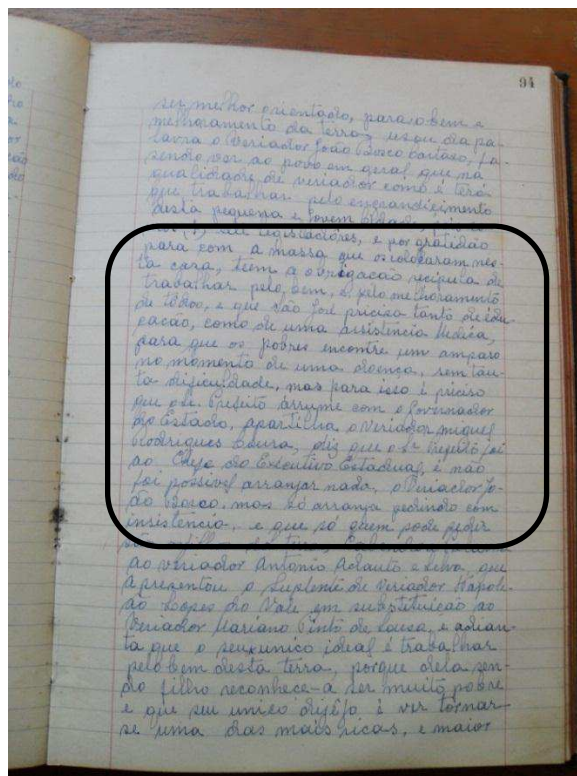 94
ser melhor orientado, para o bem e
melhoramento da terra, usou da pa-
lavra o Veriador João Bosco Cardoso, fa-
sendo ver ao povo em geral que na
qualidade de veriador como é terá
que trabalhar pelo engrandicimento
desta pequena e jovem cidade,
seus legisladores, e por gratidão
para com a massa que os colocaram nes-
ta caza, teem a obrigacão recipula de
trabalhar pelo bem, e pelo melhoramento
de todos, e que São José preciza tanto de edu-
cacão, como de uma assistencia Medica,
para que os pobres encontre um amparo
no momento de uma doença, sem tan-
ta dificuldade, mas para isso é preciso
que o sr. Prefeito arrume com o Governador
do Estado, apartilha o Veriador Miguel
Rodrigues Moura, diz que o Sr Prefeito foi
ao Chefe do Executivo Estadual, e não
foi possivel arranjar nada, o Veriador Jo-
ão Bosco, mas só arranja pedindo com
insistencia, e que só quem pode pedir
ao veriador Antonio Adauto e Silva, que
apresentou o Suplente de Veriador Napole-
ão Lopes do Vale em substituição ao
Veriador Mariano Pinto de Sousa, e adian-
ta que o seu unico ideal é trabalhar
pelo bem desta terra, porque dela sen-
do filho reconhece-a ser muito pobre
e que seu unico dizêjo é ver tornar-
se uma das mais ricas, e maior